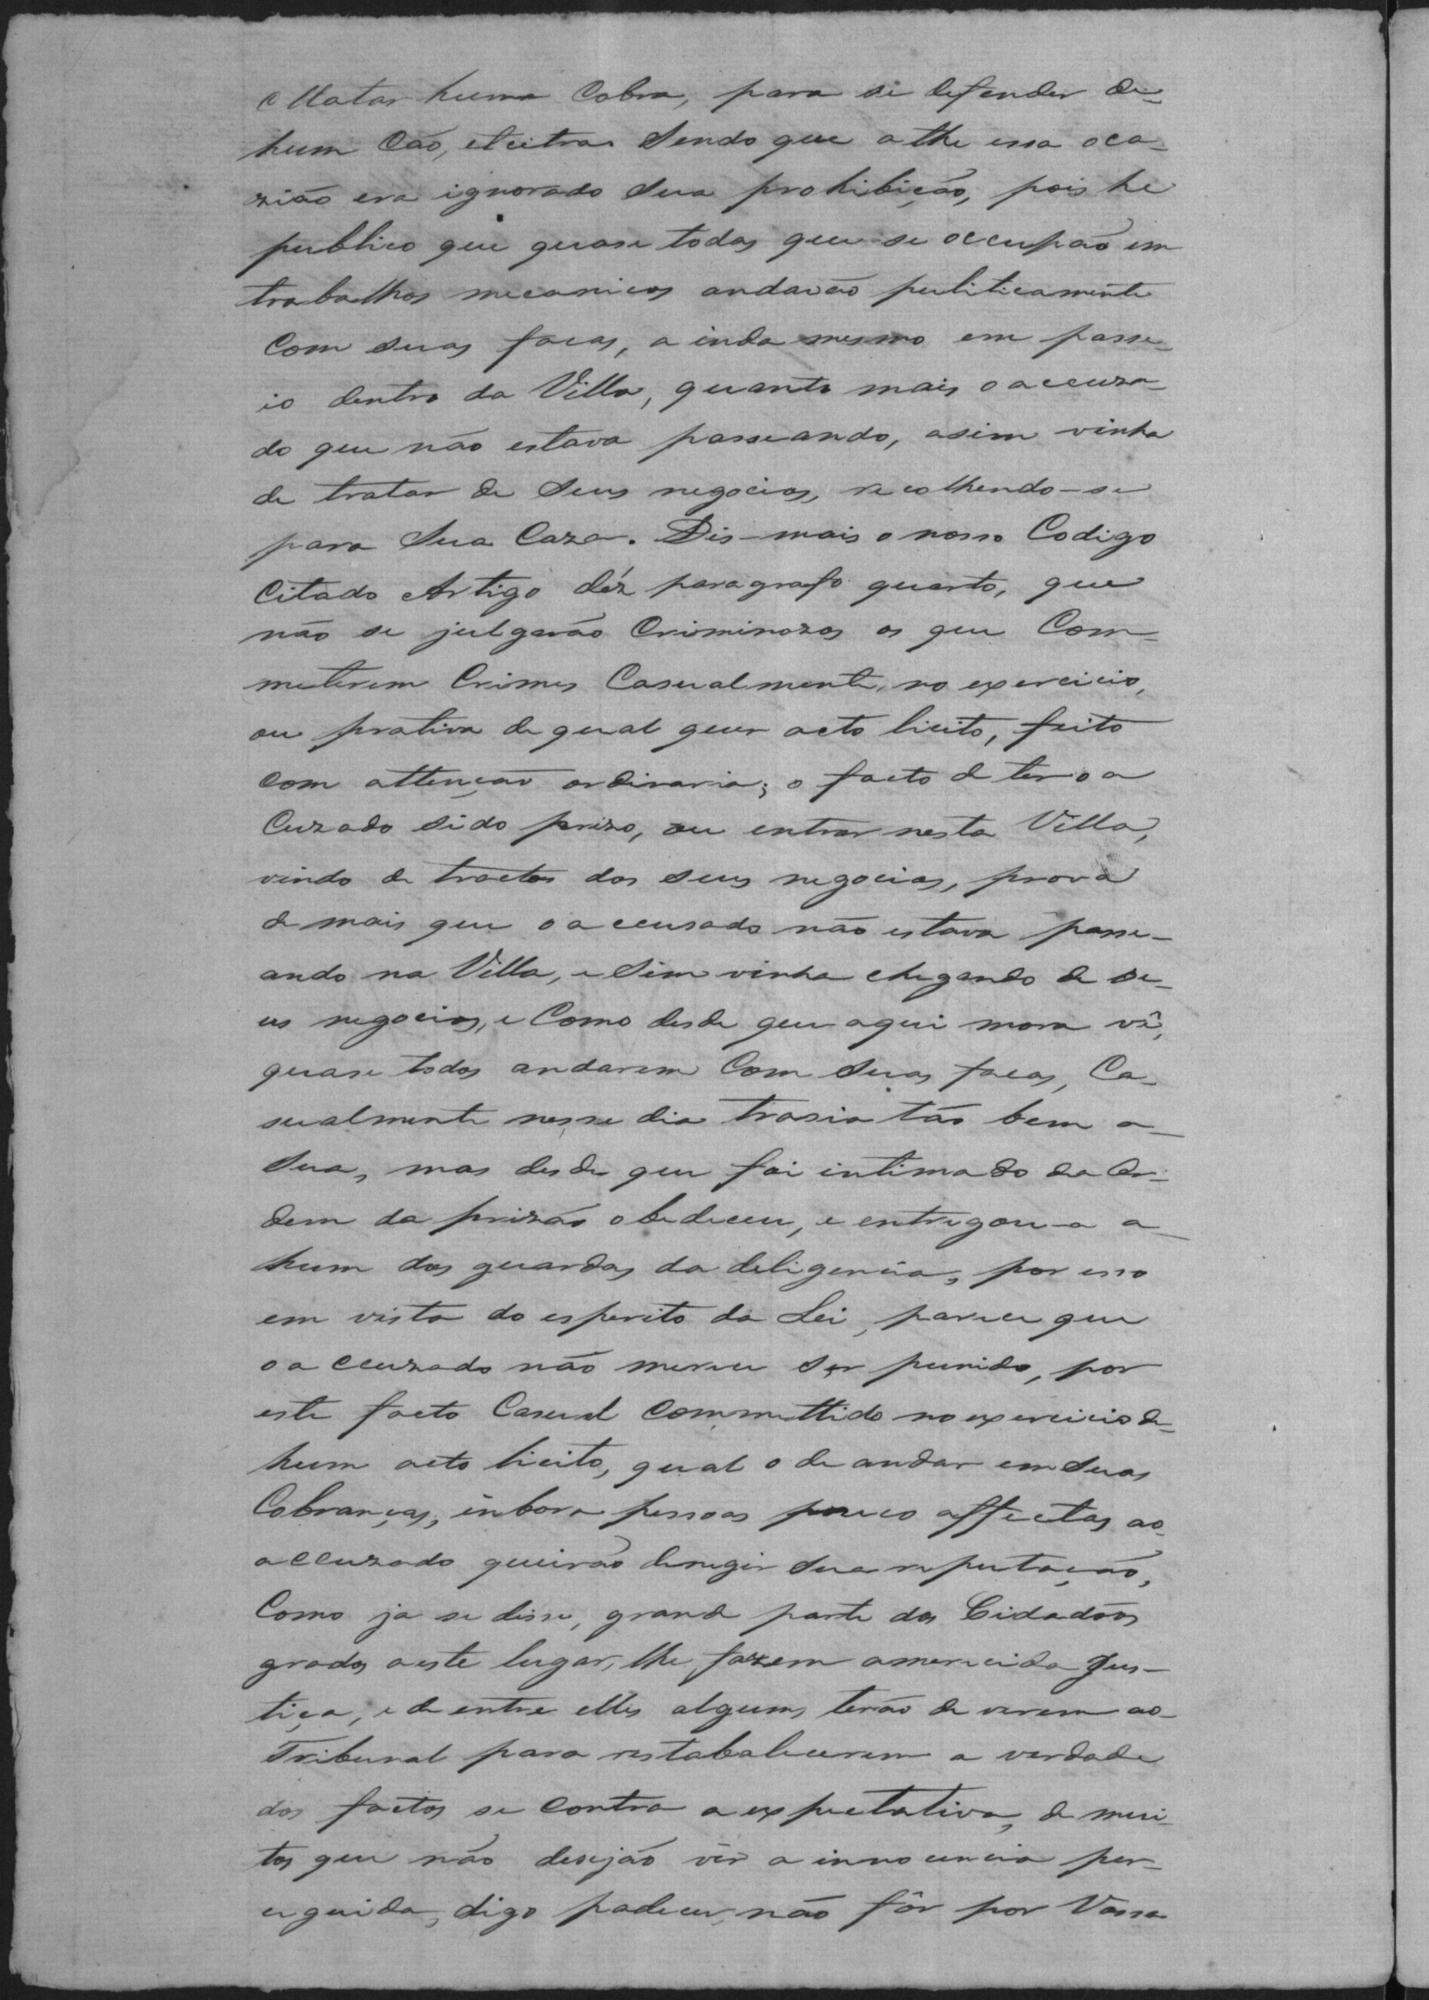 Matar huma Cobra, para si defender de
hum Cão, etcitra Sendo que athe essa oca-
zião era ignorado Sua prohibição, pois he
publico que quase todos que se occupão em
trabalhos mecanicos andavão publicamente
Com suas facas, ainda mesmo em passe-
io dentro da Villa, quanto mais o accuza-
do que não estava passeando, asim vinha
de tratar de Seus negocios, recolhendo-se
para Sua Caza. Dis-mais o nosso Codigo
Citado Artigo déz paragrafo quarto, que
não se julgarão Criminozos os que Com-
meterem Crimes Casualmente, no exercicio,
ou pratica de qual quer acto licito, feito
com attenção ordinaria; o facto de ter o a
Cuzado sido prizo, au entrar nesta Villa,
vindo de tractar dos seus negocios, prova
de mais que o accusado não estava passe-
ando na Villa, e Sim vinha chegando de se-
us negocios, e Como desde que aqui mora vê,
quase todos andarem Com Suas facas, Ca-
sualmente nesse dia trasia tão bem a
Sua, mas desde que foi intimado da Or-
dem da prizão obedeceu, e entregou-a a
hum dos guardas da deligencia, por isso
em vista do esperito da Lei, parece que
o accuzado não merece ser punido, por
este facto Casual Commettido no exercicio de
hum acto licito, qual o de andar em Suas
Cobranças, inbora pessoas pouco affectas ao
accuzado queirão denegir Sua reputação,
Como ja se disse, grande parte dos Cidadãos
grados aeste lugar, lhe fazem amerecida Jus-
tiça, e de entre elles alguns terão de virem ao
Tribunal para restabalecerem a verdade
dos factos se contra a expectativa, de mui-
tos que não desejão vêr a innocencia per-
ceguida, digo padecer, não fôr por Vossa